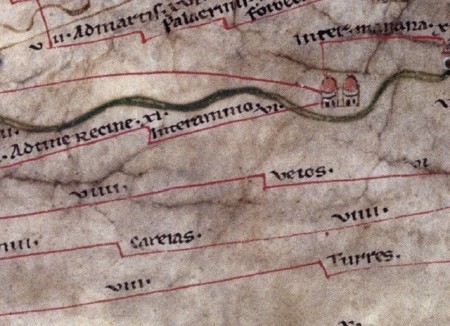 VII. Admartis.
Palacrinis
foroec
Inter manana. X
II.
Adtine Recine. XI.
Interamnio. VI.
VIIII.
Veios.
VI
VIIII.
IIII.
Careias.
Turres.
VIIII.